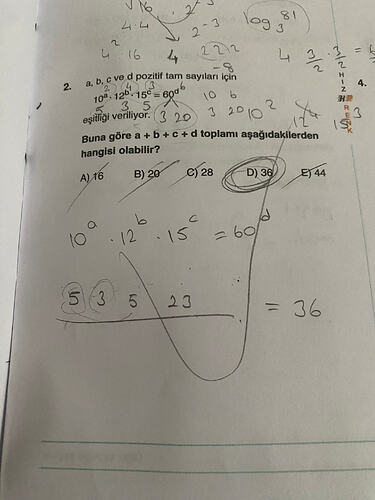 √16 . 2
4.4
2-3
log₃81
4² 16 4 222
-8
4 3/2 . 3/2
HIZ
RENK
4.
2. a, b, c ve d pozitif tam sayıları için
10ᵃ·12ᵇ·15ᶜ = 60ᵈ
10 b
5 3 5
eşitliği veriliyor.
3 20
3 20
10²
12
15³
Buna göre a + b + c + d toplamı aşağıdakilerden
hangisi olabilir?
A) 16 B) 20 C) 28 D) 36 E) 44
10ᵃ · 12ᵇ · 15ᶜ = 60ᵈ
5 3 5 23 = 36